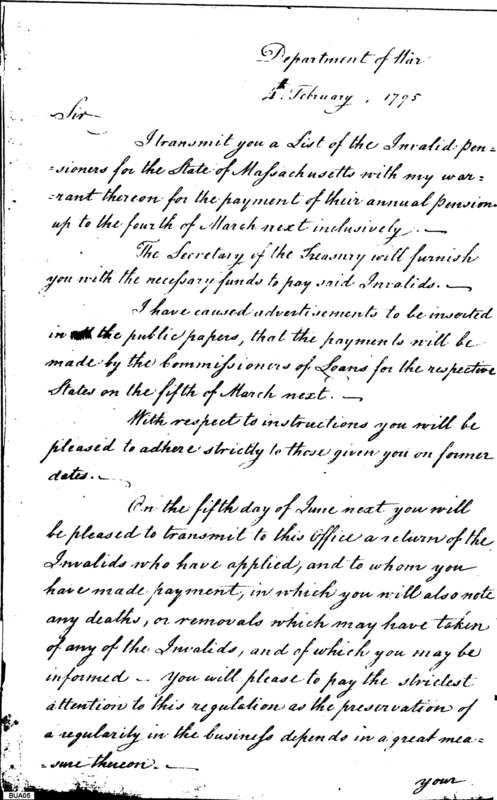 Department of War
4th February, 1795
Sir
I transmit you a List of the Invalid Pen=
=sioners for the State of Massachusetts with my war=
=rant thereon for the payment of their annual Pension
up to the fourth of March next inclusively. —
The Secretary of the Treasury will furnish
you with the necessary funds to pay said Invalids. —
I have caused advertisements to be inserted
in the public papers, that the payments will be
made by the Commissioners of Loans for the respective
States on the fifth of March next. —
With respect to instructions you will be
pleased to adhere strictly to those given you on former
dates. —
On the fifth day of June next you will
be pleased to transmit to this Office a return of the
Invalids who have applied, and to whom you
have made payment, in which you will also note
any deaths, or removals which may have taken
of any of the Invalids, and of which you may be
informed — You will please to pay the strictest
attention to this regulation as the preservation of
a regularity in the business depends in a great mea=
=sure thereon. —
your
BUA05